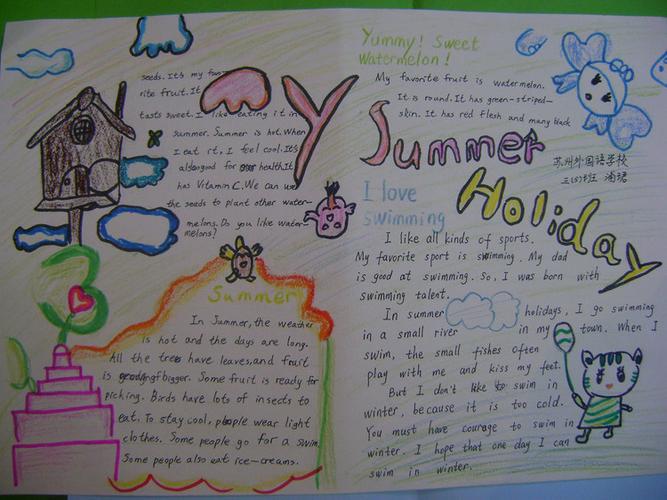 My
Summer
Holiday
苏州外国语学校
Yummy! Sweet
Watermelon!
My favorite fruit is watermelon.
It is round. It has green-striped-
skin. It has red flesh and many black
seeds. It's my favo-
rite fruit. It
tastes sweet. I like eating it in
summer. Summer is hot. When
I eat it, I feel cool. It's
also good for our health. It
has Vitamin C. We can use
the seeds to plant other water-
melons. Do you like water-
melons?
I love
swimming
I like all kinds of sports.
My favorite sport is swimming. My dad
is good at swimming. So, I was born with
swimming talent.
In summer holidays, I go swimming
in a small river in my town. When I
swim, the small fishes often
play with me and kiss my feet.
But I don't like to swim in
winter, because it is too cold.
You must have courage to swim in
winter. I hope that one day I can
swim in winter.
Summer
In Summer, the weather
is hot and the days are long.
All the trees have leaves, and fruit
is bigger. Some fruit is ready for
picking. Birds have lots of insects to
eat. To stay cool, people wear light
clothes. Some people go for a swim.
Some people also eat ice-creams.